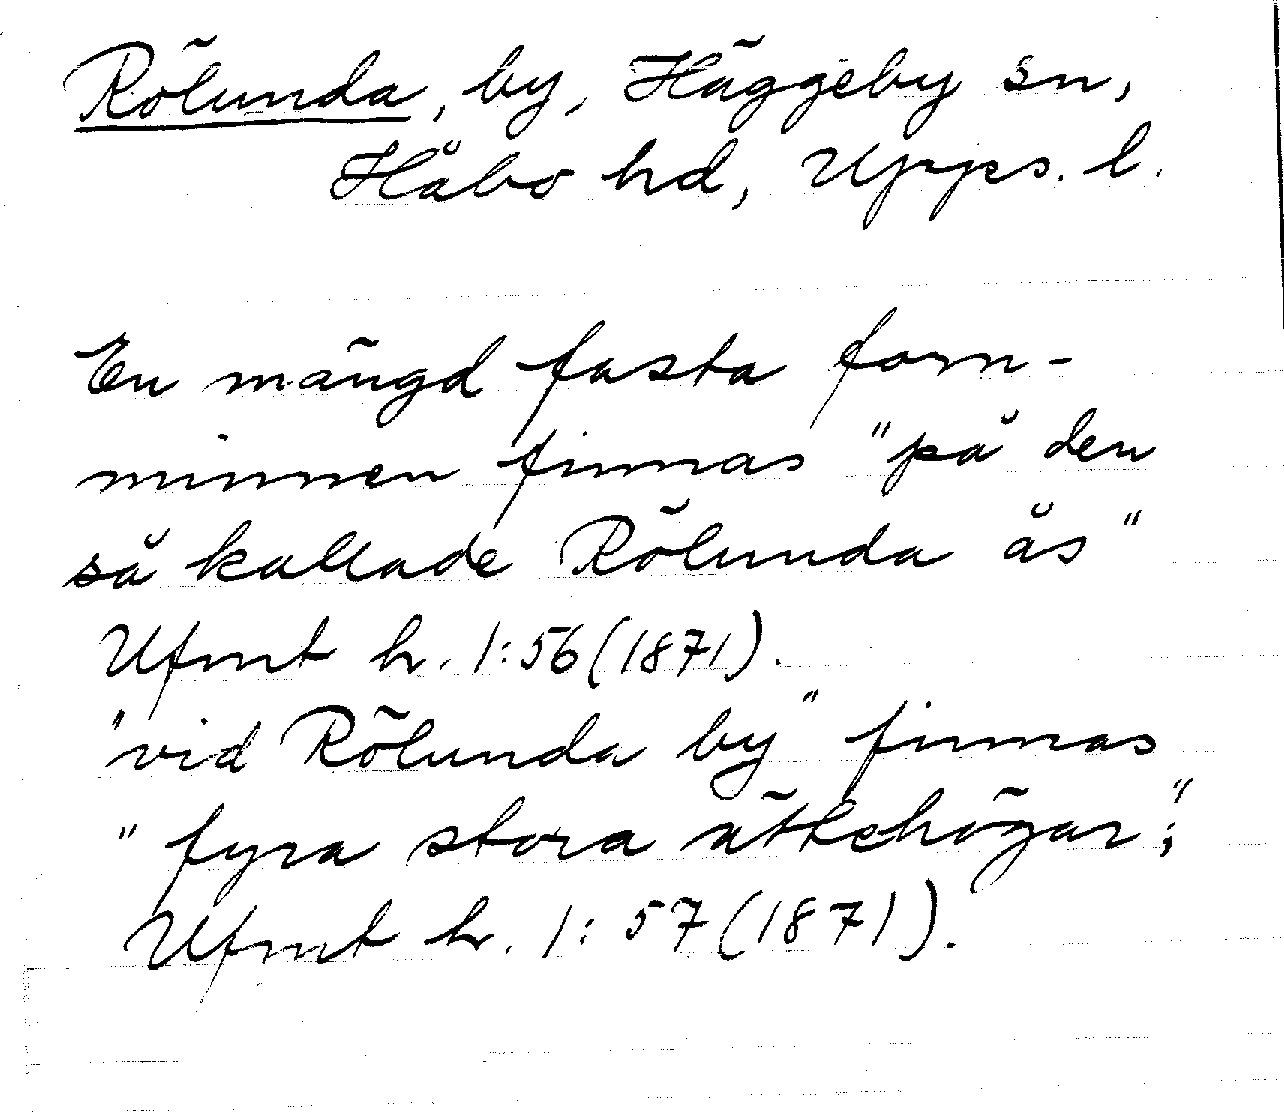 Rölunda, by, Häggeby sn,
Håbo hd, Upps. l.
En mängd fasta forn-
minnen finnas "på den
så kallade Rölunda ås"
Ufmt h. 1:56 (1871).
"vid Rölunda by" finnas
"fyra stora ättehögar";
Ufmt h. 1:57 (1871).